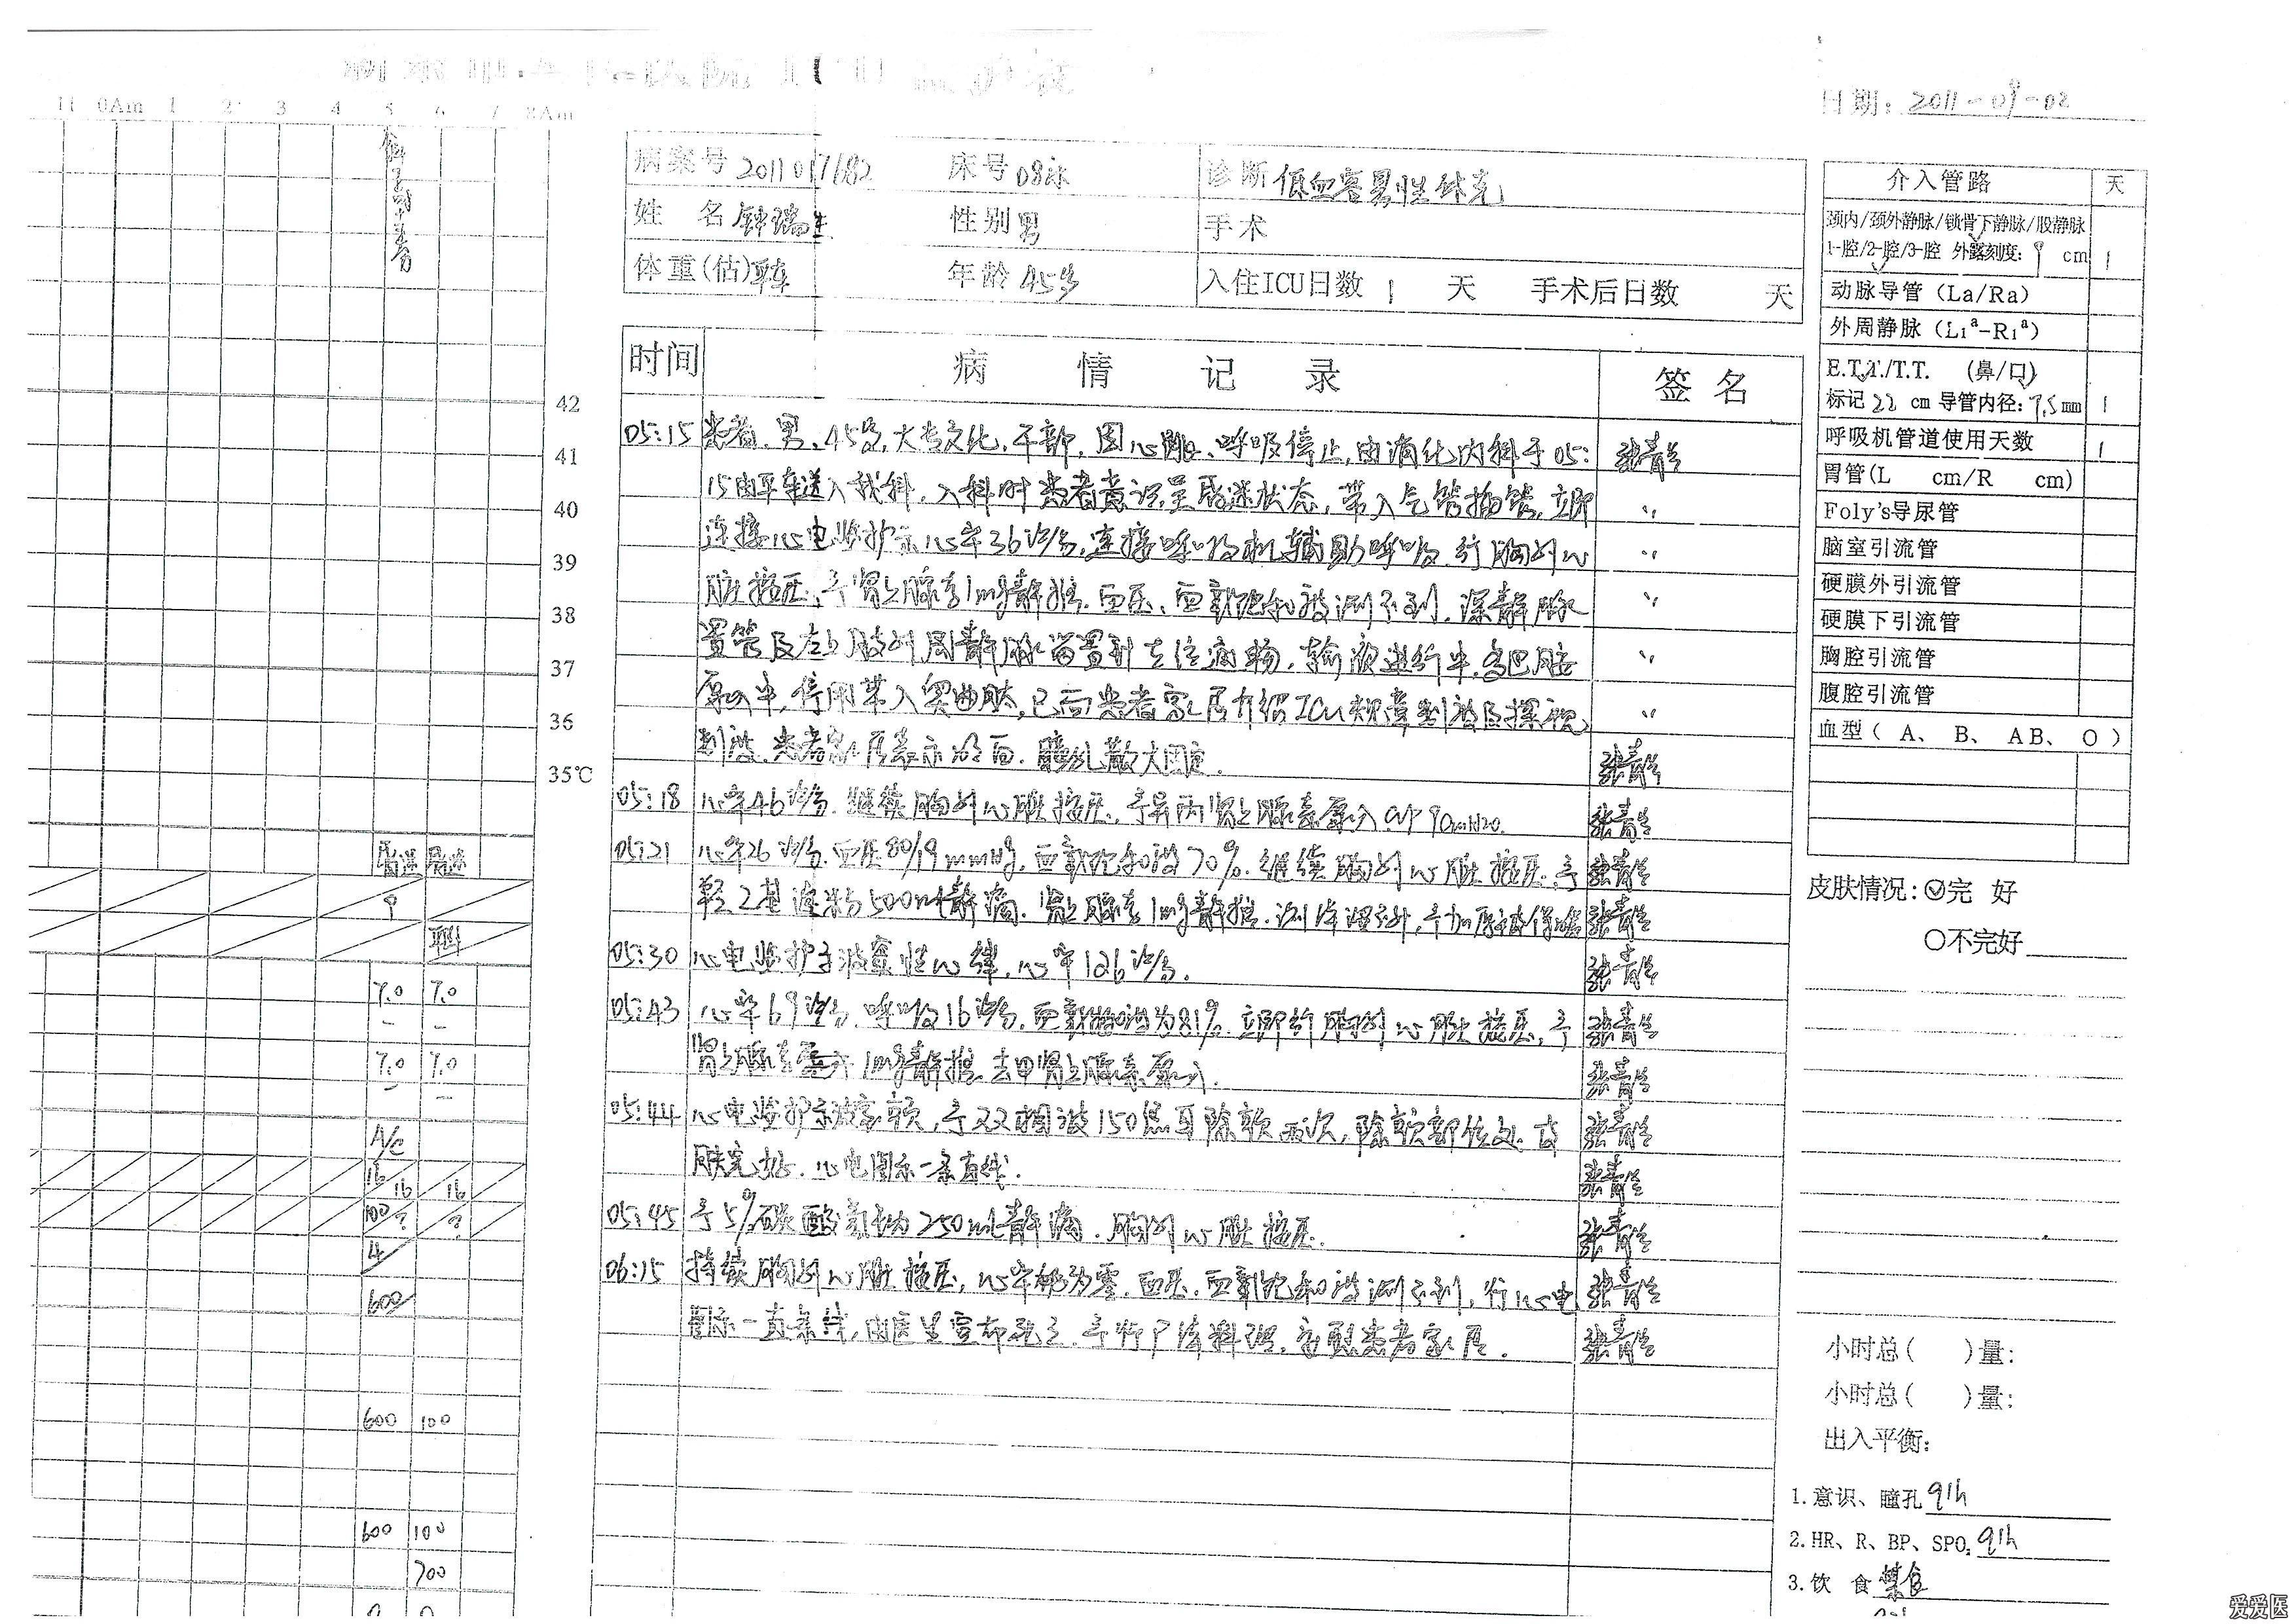 日期: 2011-09-02
11 0Am 1 2 3 4 5 6 7 8Am
病案号 2011017182 床号 08床 诊断 低血容量性休克
姓 名 钟瑞生 性别 男 手术
体重(估) 平车 年龄 45岁 入住ICU日数 1 天 手术后日数 天
时间 病 情 记 录 签 名
05:15 患者、男、45岁,大专文化,干部,因心跳、呼吸停止,由消化内科于05:
15由平车送入我科,入科时患者意识呈昏迷状态,带入气管插管,立即
连接心电监护示心率36次/分,连接呼吸机辅助呼吸,行胸外心
脏按压,予肾上腺素1mg静推,血压、血氧饱和度测不到,深静脉
置管及左上肢外周静脉留置针在位通畅,输液进行中,多巴胺
泵入中,停用带入奥曲肽,已向患者家属介绍ICU规章制度及探视
制度,患者家属表示明白,瞳孔散大固定.
05:18 心率46次/分,继续胸外心脏按压,予异丙肾上腺素泵入 CVP 9cmH2O
05:21 心率26次/分,血压80/19mmHg,血氧饱和度70%,继续胸外心脏按压,予
羟乙基淀粉500ml静滴,肾上腺素1mg静推,测体温不升,予加厚被保暖
05:30 心电监护示 性心律,心率126次/分.
05:43 心率69次/分,呼吸16次/分,血氧饱和度为81%,立即行胸外心脏按压,予
肾上腺素 1mg静推,去甲肾上腺素泵入.
05:44 心电监护示室颤,予双相波150焦耳除颤两次,除颤部位处皮
肤完好,心电图示一条直线.
05:45 予5%碳酸氢钠250ml静滴,胸外心脏按压.
06:15 持续胸外心脏按压,心率仍为零,血压、血氧饱和度测不到,行心电
图示一直条线,由医生宣布死亡,予行尸体料理,安慰患者家属.
42
41
40
39
38
37
36
35℃
昏迷 昏迷
7.0 7.0
7.0 7.0
A/C
16 16 16
100 ? ?
4
600
600 100
600 100
700
介入管路 天
颈内/颈外静脉/锁骨下静脉/股静脉
1-腔/2-腔/3-腔 外露刻度: 9 cm 1
动脉导管 (La/Ra)
外周静脉 (L1ª-R1ª)
E.T.T./T.T. (鼻/口)
标记 22 cm 导管内径: 7.5 mm 1
呼吸机管道使用天数 1
胃管(L cm/R cm)
Foly's导尿管
脑室引流管
硬膜外引流管
硬膜下引流管
胸腔引流管
腹腔引流管
血型( A、 B、 AB、 O )
皮肤情况: ✓完 好
○不完好
小时总( )量:
小时总( )量:
出入平衡:
1.意识、瞳孔 q1h
2.HR、R、BP、SPO2 q1h
3.饮 食 禁食
爱爱医